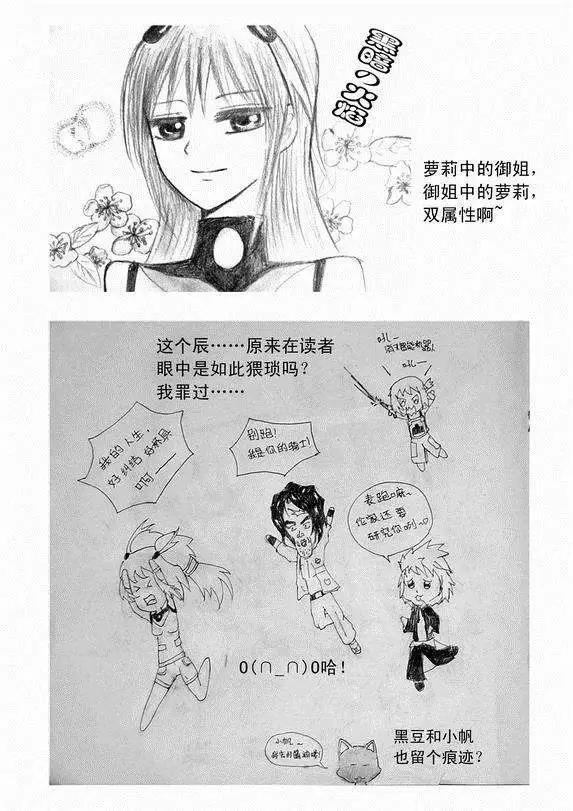 黑暗
火焰
萝莉中的御姐,
御姐中的萝莉,
双属性啊~
这个辰……原来在读者
眼中是如此猥琐吗?
我罪过……
吼—
吼—
我的人生,
好纠结 好杯具
啊——
别跑!
我是你的骑士!
表跑嘛~
伦家还要
研究你咧~
O(∩_∩)O哈!
小帆~
黑豆和小帆
也留个痕迹?